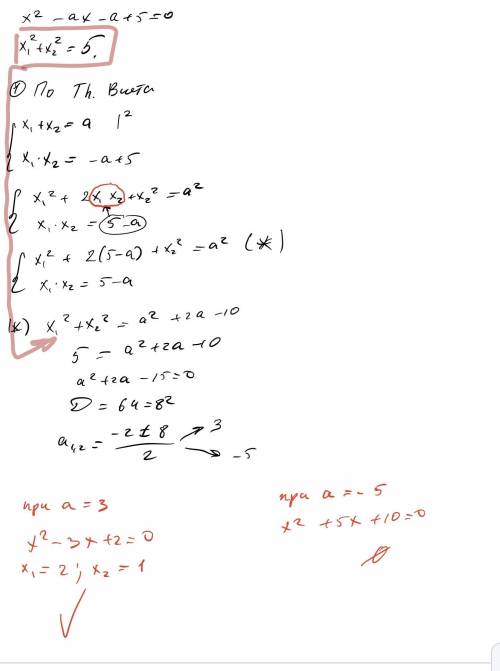 x² - ax - a + 5 = 0
x₁² + x₂² = 5.
① По Th. Виета
{ x₁ + x₂ = a |²
x₁ · x₂ = -a + 5
{ x₁² + 2x₁x₂ + x₂² = a²
x₁ · x₂ = 5 - a
{ x₁² + 2(5-a) + x₂² = a² (*)
x₁ · x₂ = 5 - a
(*) x₁² + x₂² = a² + 2a - 10
5 = a² + 2a - 10
a² + 2a - 15 = 0
D = 64 = 8²
a₁,₂ = (-2 ± 8)/2 → 3
→ -5
при a = 3
x² - 3x + 2 = 0
x₁ = 2 ; x₂ = 1
при a = -5
x² + 5x + 10 = 0
∅